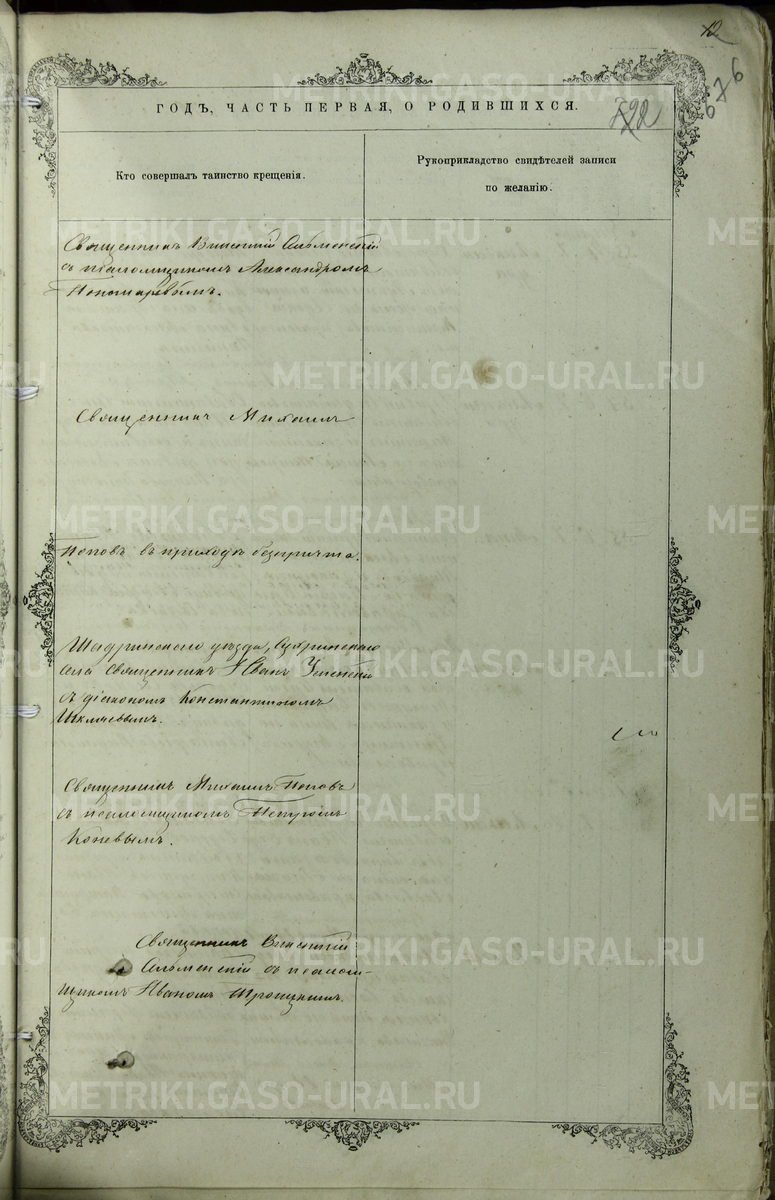 12
676
ГОДЪ, ЧАСТЬ ПЕРВАЯ, О РОДИВШИХСЯ.
Кто совершалъ таинство крещенія.
Рукоприкладство свидѣтелей записи
по желанію.
Священникъ Викентій
съ псаломщикомъ Александромъ
Пономаревымъ.
Священникъ Михаилъ
Поповъ въ приходѣ безъ причта.
Шадринскаго уѣзда, Сухринскаго
села священникъ Иванъ Успенскій
съ діакономъ Константиномъ
Шкляевымъ.
Священникъ Михаилъ Поповъ
съ псаломщикомъ Петромъ
Коневымъ.
Священникъ Викентій
съ псалом-
щикомъ Иваномъ Троицкимъ.
METRIKI.GASO-URAL.RU